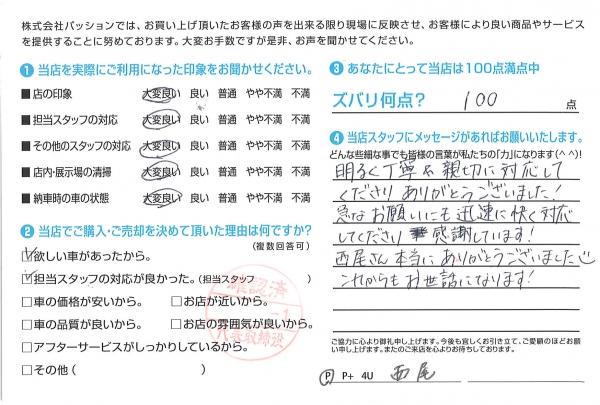 株式会社パッションでは、お買い上げ頂いたお客様の声を出来る限り現場に反映させ、お客様により良い商品やサービス
を提供することに努めております。大変お手数ですが是非、お声を聞かせてください。
❶ 当店を実際にご利用になった印象をお聞かせください。
■ 店の印象 大変良い 良い 普通 やや不満 不満
■ 担当スタッフの対応 大変良い 良い 普通 やや不満 不満
■ その他のスタッフの対応 大変良い 良い 普通 やや不満 不満
■ 店内・展示場の清掃 大変良い 良い 普通 やや不満 不満
■ 納車時の車の状態 大変良い 良い 普通 やや不満 不満
❷ 当店でご購入・ご売却を決めて頂いた理由は何ですか?
(複数回答可)
☑欲しい車があったから。
☑担当スタッフの対応が良かった。(担当スタッフ
□車の価格が安いから。 □お店が近いから。
□車の品質が良いから。 □お店の雰囲気が良いから。
□アフターサービスがしっかりしているから。
□その他( )
確認済
代表取締役
❸ あなたにとって当店は100点満点中
ズバリ何点? 100 点
❹ 当店スタッフにメッセージがあればお願いいたします。
どんな些細な事でも皆様の言葉が私たちの「力」になります(^^)!
明るく丁寧な親切に対応して
くださりありがとうございました!
急なお願いにも迅速に快く対応
してくださり感謝しています!
西尾さん本当にありがとうございました
これからもお世話になります!
ご協力に心より御礼申し上げます。今後も宜しくお引き立て、ご愛顧のほどお願
い申し上げます。またのご来店を心よりお待ちしております。
Ⓟ P+ 4U 西尾